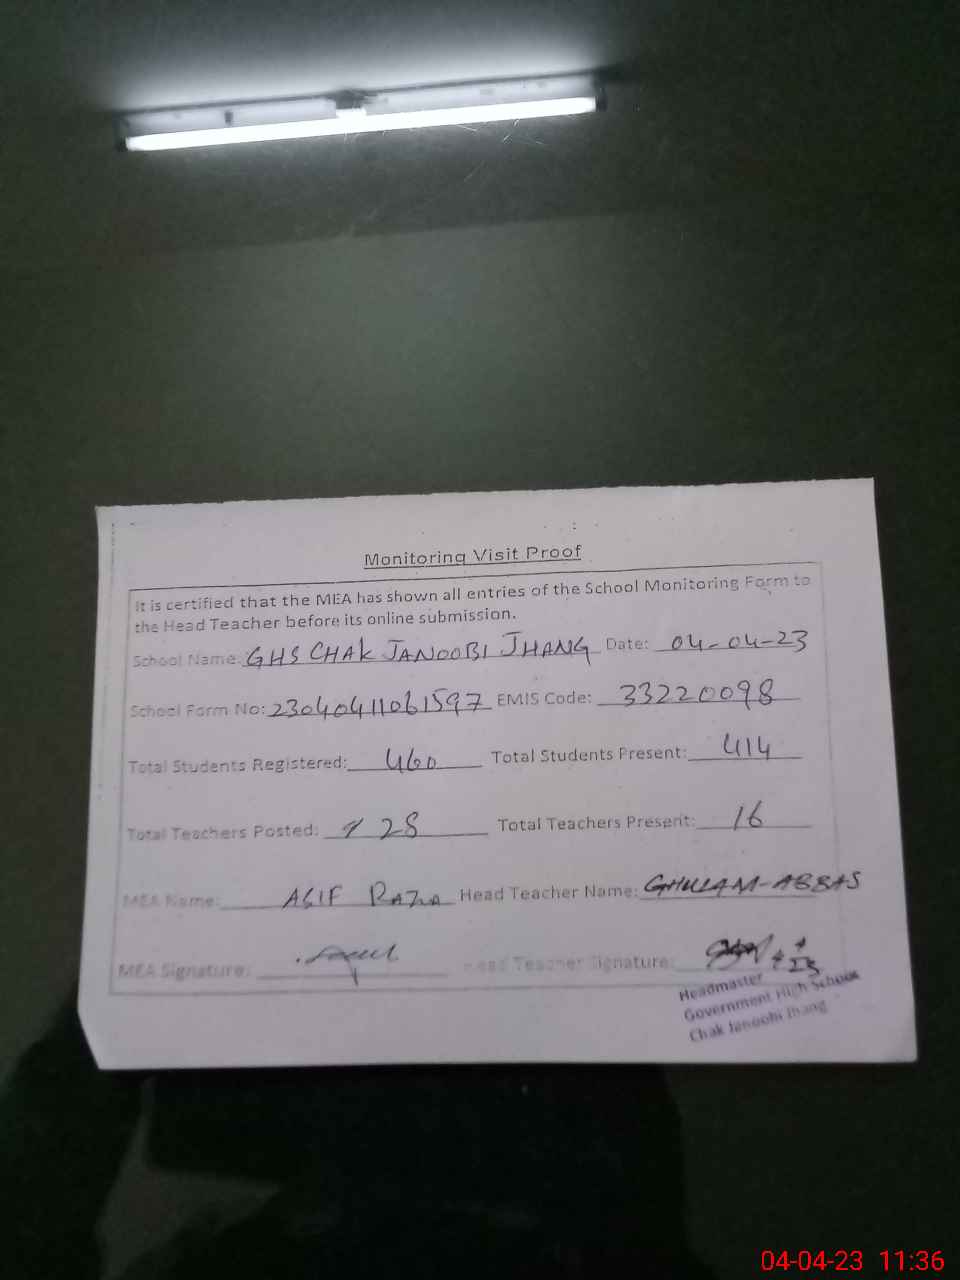 Monitoring Visit Proof
It is certified that the MEA has shown all entries of the School Monitoring Form to
the Head Teacher before its online submission.
School Name: GHS CHAK JANOOBI JHANG Date: 04-04-23
School Form No: 23040411061597 EMIS Code: 33220098
Total Students Registered: 460 Total Students Present: 414
Total Teachers Posted: 28 Total Teachers Present: 16
MEA Name: ASIF RAZA Head Teacher Name: GHULAM-ABBAS
MEA Signature: Head Teacher Signature: 4 4 23
Headmaster
Government High School
Chak Janoobi Jhang
04-04-23 11:36